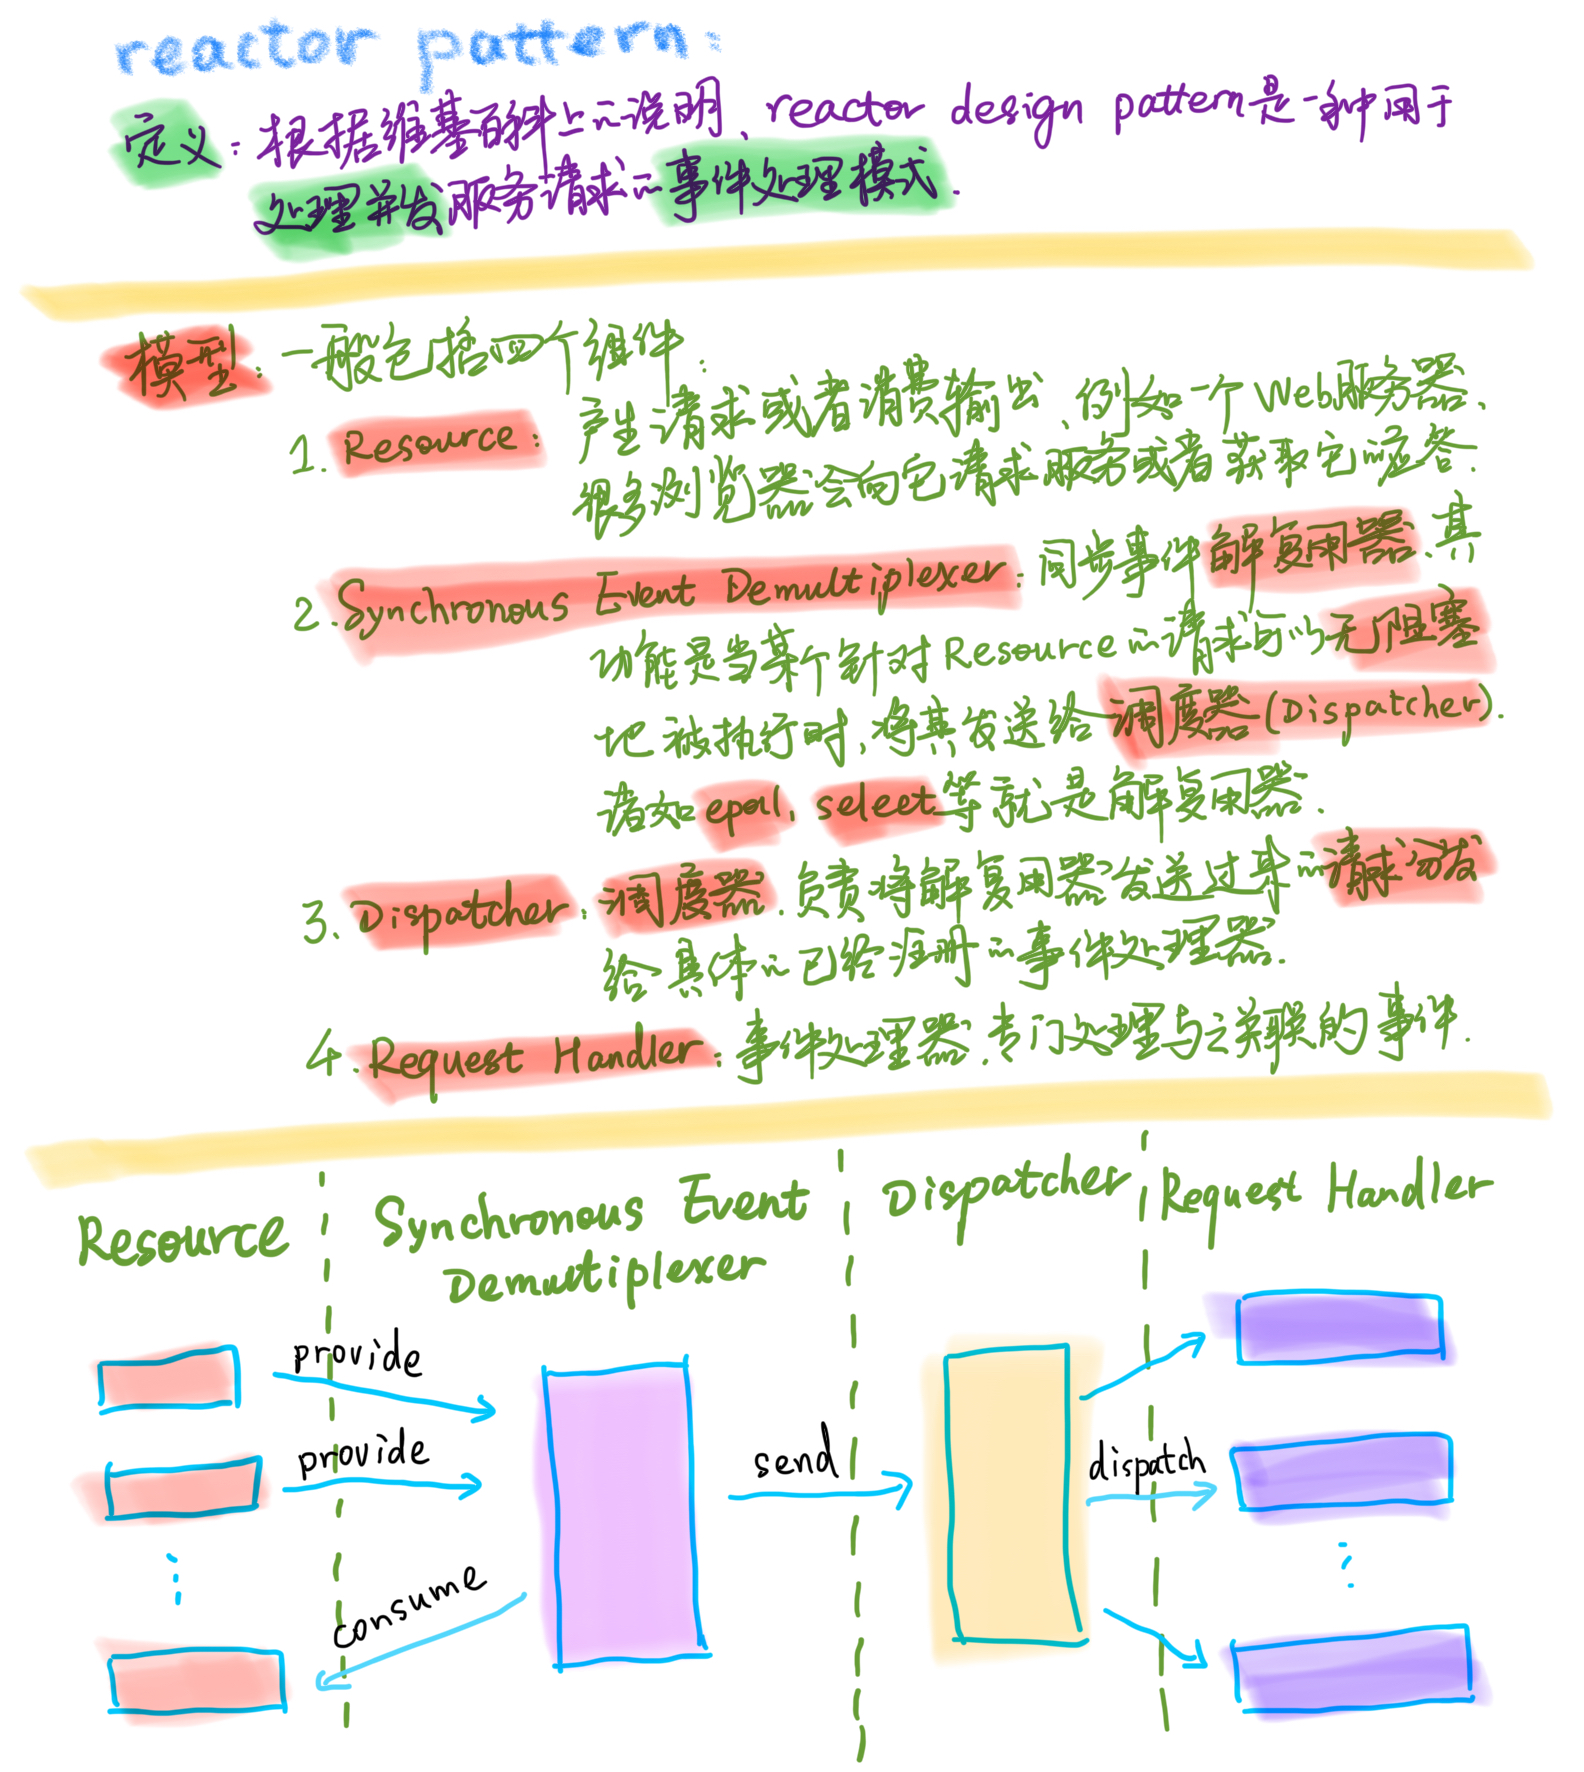 reactor pattern:
定义: 根据维基百科上的说明、reactor design pattern是一种用于
处理并发服务请求的事件处理模式.
模型: 一般包括四个组件:
1. Resource: 产生请求或者消费输出、例如一个Web服务器、
很多浏览器会向它请求服务或者获取它的应答.
2. Synchronous Event Demultiplexer: 同步事件解复用器、其
功能是当某个针对Resource的请求可以无阻塞
地被执行时,将其发送给调度器(Dispatcher).
诸如epoll、select等就是解复用器.
3. Dispatcher: 调度器、负责将解复用器发送过来的请求分发
给具体的已经注册的事件处理器.
4. Request Handler: 事件处理器、专门处理与之关联的事件.
Resource
Synchronous Event
Demultiplexer
Dispatcher
Request Handler
provide
provide
consume
send
dispatch